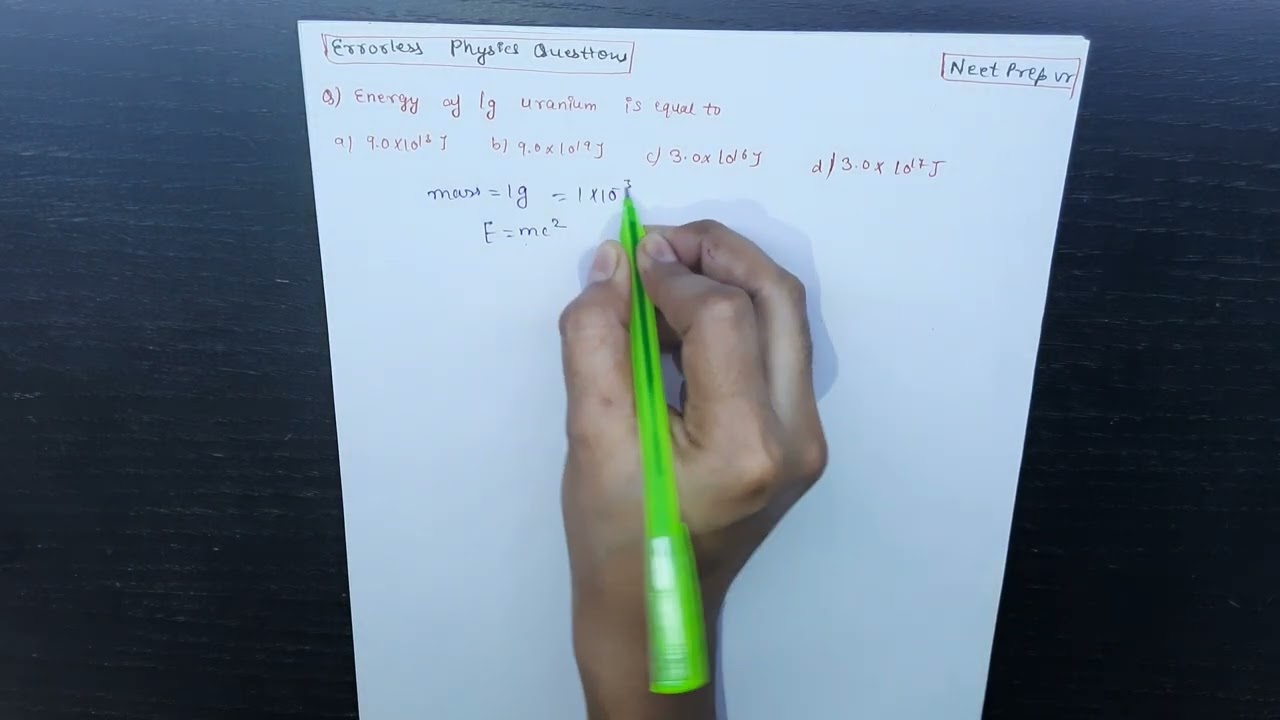 Errorless Physics Questions
Neet Prep vr
Q) Energy of 1g uranium is equal to
a) 9.0×10¹³ J b) 9.0×10¹⁹ J c) 3.0×10¹⁶ J d) 3.0×10¹⁷ J
mass = 1g = 1×10⁻³
E = mc²